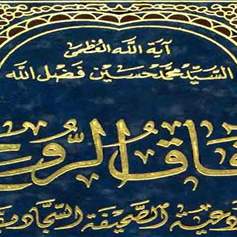 آية الله العظمى
السيد محمد حسين فضل الله
فاق الروح
دعية الصحيفة السجادية